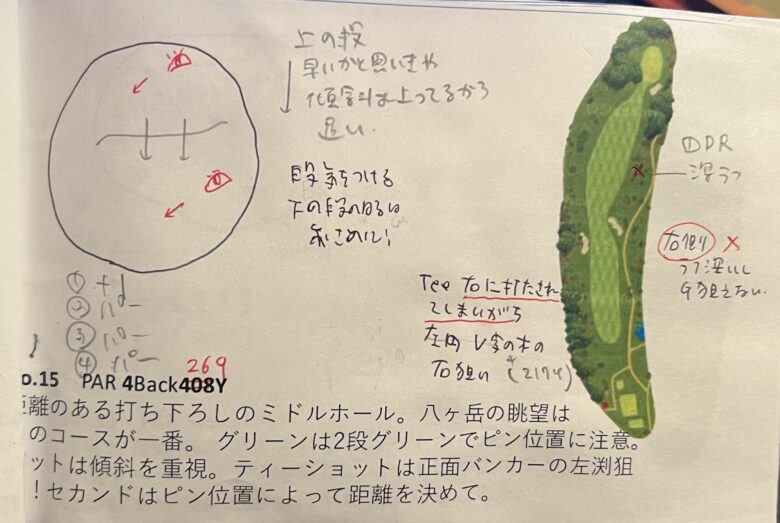 上の段
早いかと思いきや
傾斜は上ってるから
遅い.
段 気をつける
下の段の時は
①
②
③ パー
④ パー
269
①DR
深ラフ
右狙い ×
ラフ深いし
狙えない.
Tee 右に打たされ
てしまいがち
左の木の
右狙い (217Y)
o.15 PAR 4Back408Y
距離のある打ち下ろしのミドルホール。八ヶ岳の眺望は
のコースが一番。 グリーンは2段グリーンでピン位置に注意。
ットは傾斜を重視。ティーショットは正面バンカーの左渕狙
!セカンドはピン位置によって距離を決めて。